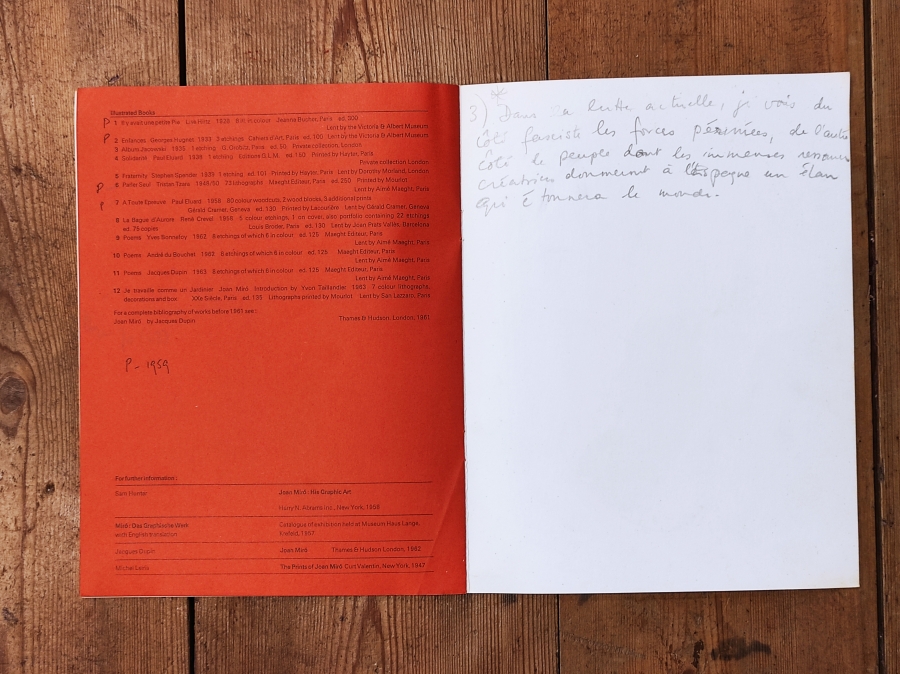 Illustrated Books
P 1 Il y avait une petite Pie Lise Hirtz 1928 8 ill. in colour Jeanne Bucher, Paris ed. 300
Lent by the Victoria & Albert Museum
P 2 Enfances Georges Hugnet 1933 3 etchings Cahiers d'Art, Paris ed. 100 Lent by the Victoria & Albert Museum
3 Album Jeunesse 1935 1 etching Paris ed. 50 Private collection, London
4 Solidarité Paul Eluard 1938 1 etching Editions G.L.M. ed. 150 Printed by Hayter, Paris
Private collection London
5 Fraternity Stephen Spender 1939 1 etching ed. 101 Printed by Hayter, Paris Lent by Dorothy Morland, London
P 6 Parler Seul Tristan Tzara 1948/50 72 lithographs Maeght Editeur, Paris ed. 250 Printed by Mourlot
Lent by Aimé Maeght, Paris
P 7 A Toute Epreuve Paul Eluard 1958 80 colour woodcuts, 2 wood blocks, 3 additional prints
Gérald Cramer, Geneva ed. 130 Printed by Lacourière Lent by Gérald Cramer, Geneva
8 La Bague d'Aurore René Crevel 1958 5 colour etchings, 1 on cover, also portfolio containing 22 etchings
ed. 75 copies Louis Broder, Paris ed. 130 Lent by Joan Prats Vallès, Barcelona
9 Poems Yves Bonnefoy 1962 8 etchings of which 6 in colour ed. 125 Maeght Editeur, Paris
Lent by Aimé Maeght, Paris
10 Poems André du Bouchet 1962 8 etchings of which 6 in colour ed. 125 Maeght Editeur, Paris
Lent by Aimé Maeght, Paris
11 Poems Jacques Dupin 1963 8 etchings of which 6 in colour ed. 125 Maeght Editeur, Paris
Lent by Aimé Maeght, Paris
12 Je travaille comme un Jardinier Joan Miró Introduction by Yvon Taillandier 1963 7 colour lithographs,
decorations and box XXe Siècle, Paris ed. 195 Lithographs printed by Mourlot Lent by San Lazzaro, Paris
For a complete bibliography of works before 1961 see:
Joan Miró by Jacques Dupin Thames & Hudson, London, 1961
P - 1959
For further information:
Sam Hunter Joan Miró: His Graphic Art
Harry N. Abrams Inc., New York, 1958
Miró: Das Graphische Werk Catalogue of exhibition held at Museum Haus Lange,
with English translation Krefeld, 1957
Jacques Dupin Joan Miró Thames & Hudson London, 1962
Michel Leiris The Prints of Joan Miró Curt Valentin, New York, 1947
3) Dans la lutte actuelle, je vois du
côté fasciste les forces périmées, de l'autre
côté le peuple dont les immenses ressources
créatrices donneront à l'Espagne un élan
qui étonnera le monde.